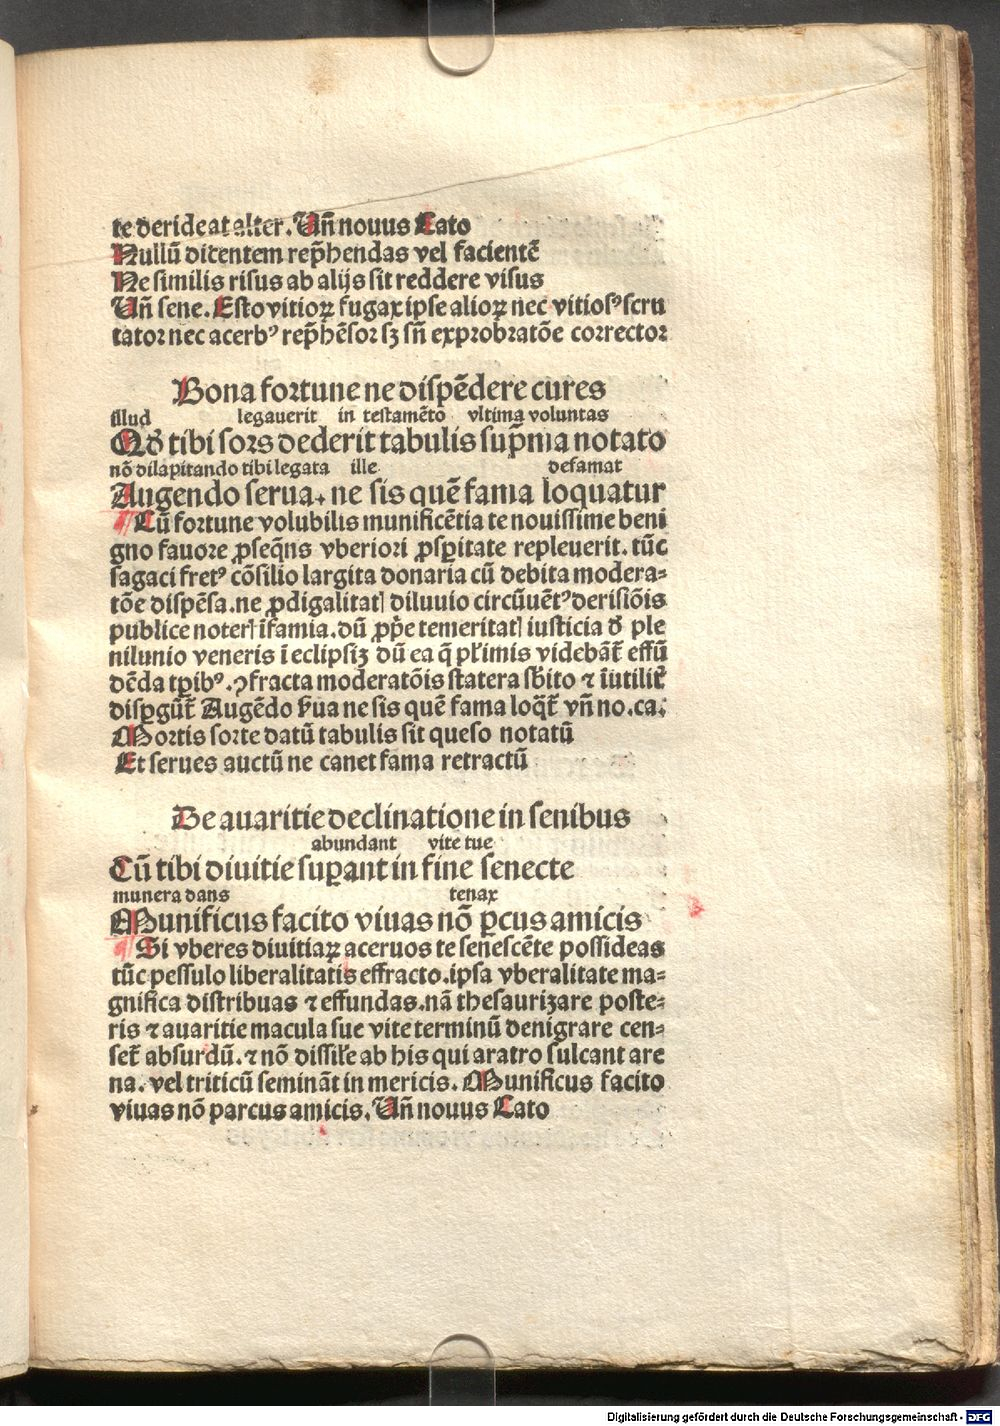 te derideat alter. Un̄ novus Cato
Nullū dicentem rep̄hendas vel facientē
Ne similis risus ab alijs sit reddere visus
Un̄ sene. Esto vitioꝝ fugax ipse alioꝝ nec vitiosꝰ scru
tator nec acerbꝰ rep̄hēsor sꝫ sn̄ exprobratōe corrector
Bona fortune ne dispēdere cures
illud legaverit in testamēto vltima voluntas
Qđ tibi sors dederit tabulis sup̄ma notato
nō dilapitando tibi legata ille defamat
Augendo serua. ne sis quē fama loquatur
¶ Cū fortune volubilis munificētia te novissime beni
gno favore ꝓseq̄ns vberiori ꝓsꝑitate repleverit. tūc
sagaci fretꝰ cōsilio largita donaria cū debita modera⸗
tōe dispēsa. ne ꝓdigalitatꝭ diluvio circūuētꝰ derisiōis
publice noterꝭ īfamia. dū ꝓp̄e temeritatꝭ iusticia đ ple
nilunio veneris ī eclipsiꝫ dū ea q̄ pl̄imis videbāt̄ effū
dēda tꝑibꝰ. ꝯfracta moderatōis statera sb̄ito ⁊ īutilit̄
disꝑgūt̄ Augēdo ẜua ne sis quē fama loq̄t̄ vn̄ no. ca.
Mortis sorte datū tabulis sit queso notatū
Et serves auctū ne canet fama retractū
De avaritie declinatione in senibus
abundant vite tue
Cū tibi divitie suꝑant in fine senecte
munera dans tenax
Munificus facito vivas nō ꝑcus amicis
¶ Si vberes divitiaꝝ acervos te senescēte possideas
tūc pessulo liberalitatis effracto. ipsa vberalitate ma⸗
gnifica distribuas ⁊ effundas. nā thesaurizare poste⸗
ris ⁊ avaritie macula sue vite terminū denigrare cen⸗
set̄ absurdū. ⁊ nō dissil̄e ab his qui aratro sulcant are
na. vel triticū semināt in mericis. Munificus facito
vivas nō parcus amicis. Un̄ novus Cato
Digitalisierung gefördert durch die Deutsche Forschungsgemeinschaft - DFG